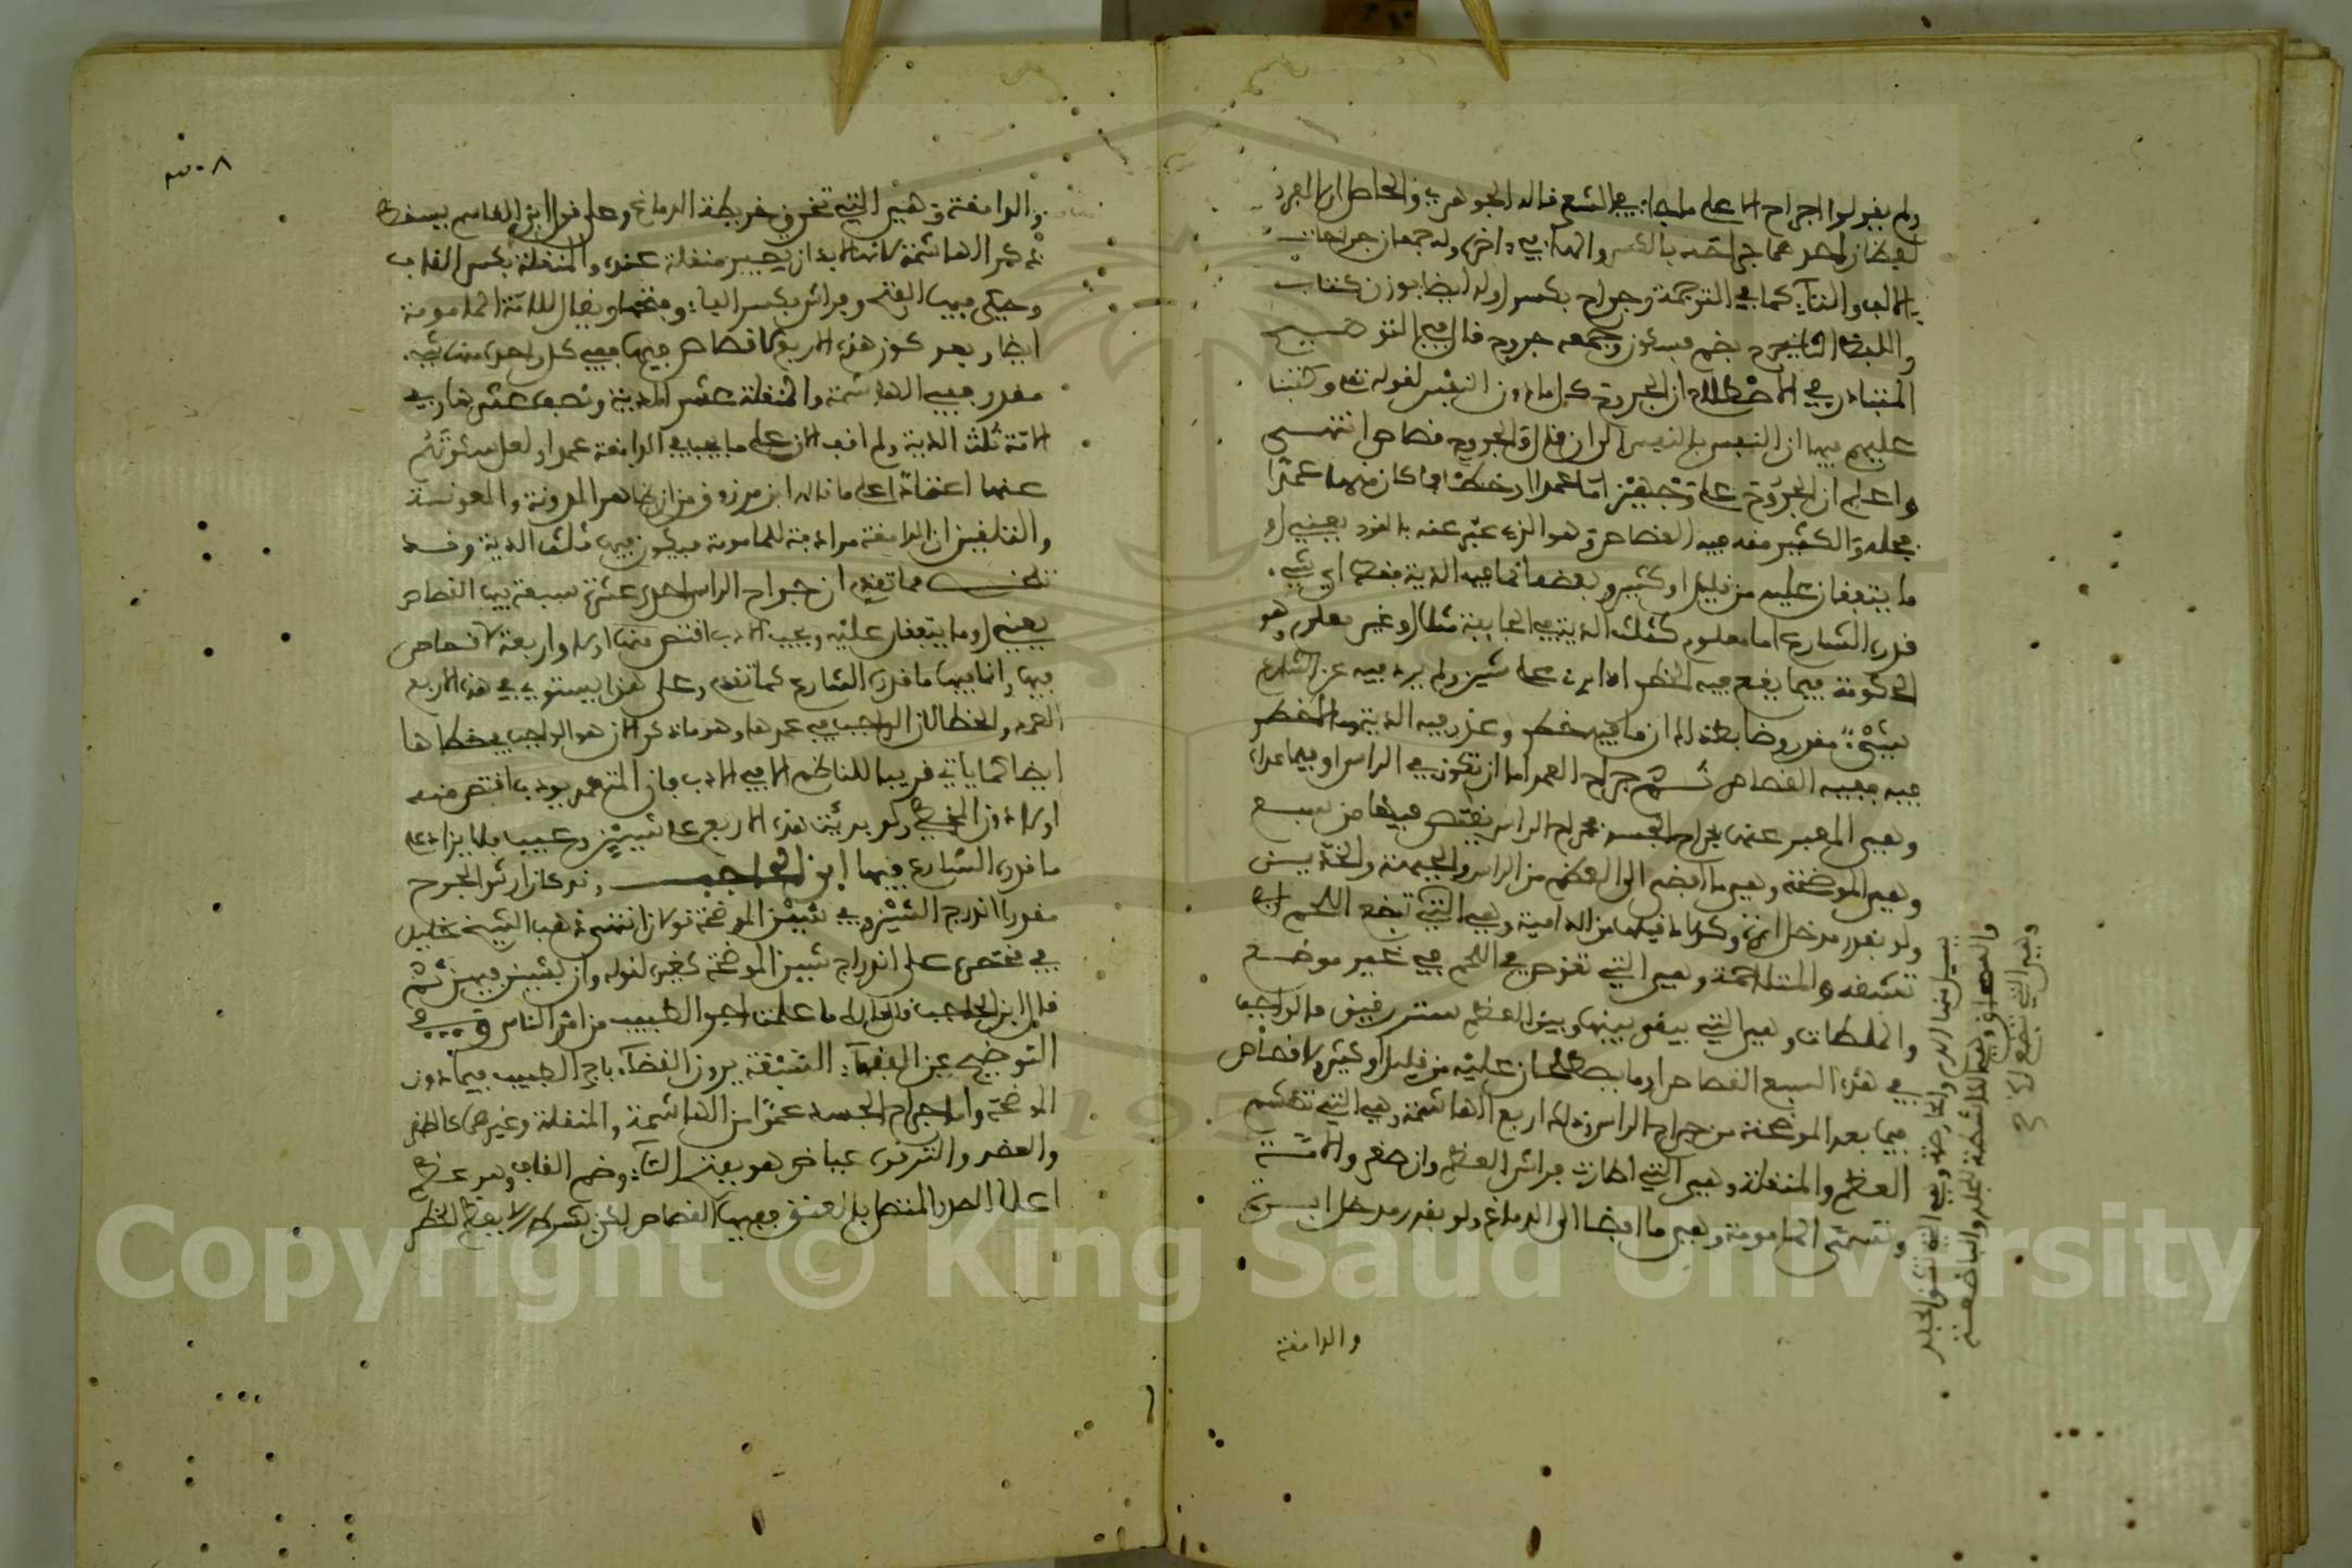 ولم يقولوا اجراح الا على ما جاء في الشعر قاله الجوهري والحاصل ان المفرد
لفظان احدهما جراحة بالكسر والهاء في اخره وله جمعان جراحات
بالالف والتاء كما في الترجمة وجراح بكسر اوله ايضا بوزن كتاب
واللفظ الثاني جرح بضم فسكون وجمعه جروح قال في التوضيح
المتبادر في الاصطلاح ان الجروح كل ما دون النفس لقوله تعلى وكتبنا
عليهم فيها ان النفس بالنفس الى ان قال والجروح قصاص انتهى
واعلم ان الجروح على وجهين اما عمدا او خطئا فما كان منها عمدا
فجله والكثير منه فيه القصاص وهو الذي عبر عنه بالقود يعني او
ما يتفقان عليه من قليل او كثير وبعضها انما فيه الدية فقط اي شيء
قدره الشارع اما معلوم كثلث الدية في الجايفة مثلا او غير معلوم وهو
الحكومة فيما يقع فيه الخطر اذا برئ على شين ولم يرد فيه عن الشارع
شيء مقدر وضابطه ان ما فيه خطر وغرر فيه الدية وما لا خطر
فيه ففيه القصاص ثم جراح العمد اما ان تكون في الراس او فيما عداه
وهي المعبر عنها بجراح الجسد فجراح الراس يقتص فيها من سبع
وهي الموضحة وهي ما افضى الى العظم من الراس والجبهة والخدين
ولو بقدر مدخل ابرة وكل ما قبلها من الدامية وهي التي تبضع اللحم اي
تشقه والمتلاحمة وهي التي تغوص في اللحم في غير موضع
والملطات وهي التي يبقى بينها وبين العظم ستر رقيق فالواجب
في هذه السبع القصاص او ما يصطلحان عليه من قليل او كثير ولا قصاص
فيما بعد الموضحة من جراح الراس وذلك اربع الهاشمة وهي التي تهشم
العظم والمنقلة وهي التي اطارت فراش العظم وان صغر والامة
وتسمى المامومة وهي ما افضى الى الدماغ ولو بقدر مدخل ابرة
والدامغة
يسيل منها الدم والحارصة وهي التي تشق الجلد
والسمحاق وهي الكاشطة للجلد والباضعة
وهي التي تبضع
٣٠٨
والدامغة وهي التي تخرق خريطة الدماغ وعلى قول ابن القاسم يسقط
ذكر الهاشمة لانها لا بد ان تصير منقلة عنده والمنقلة بكسر القاف
وحكي فيها الفتح وفراش بكسر الفاء وفتحها ويقال للامة المامومة
ايضا وبعد كون هذه الاربع لا قصاص فيها ففي كل واحدة منها شيء
مقدر ففي الهاشمة والمنقلة عشر الدية ونصف عشرها وفي
الامة ثلث الدية ولم اقف الان على ما يجب في الدامغة عمدا ولعل سكوتهم
عنها اعتمادا على ما قاله ابن مرزوق من ان ظاهر المدونة والمعونة
والتلقين ان الدامغة مرادفة للمامومة فيكون فيها ثلث الدية وقد
تلخص مما تقدم ان جراح الراس احدى عشرة سبعة فيها القصاص
يعني او ما يتفقان عليه ويجب الادب اقتص منها او لا واربعة لا قصاص
فيها وانما فيها ما قدره الشارع كما تقدم وعلى هذا يستوي في هذه الاربع
العمد والخطا لان الواجب في عمدها وهو ما ذكر الان هو الواجب في خطاها
ايضا كما ياتي قريبا للناظم الا في الادب فان المتعمد يودب اقتص منه
او لا دون المخطي ولو برئت هذه الاربع على شين وعيب فلا يزاد على
ما قدره الشارع فيها ابن الحاجب ولو كان ارش الجرح
مقدرا اندرج الشين وفي شين الموضحة قولان انتهى وذهب الشيخ خليل
في مختصره على اندراج شين الموضحة كغيره لقوله وان بشين فيهن ثم
قال ابن الحاجب قال مالك ما علمت اجر الطبيب من امر الناس وفي
التوضيح عن الفقهاء السبعة يرون القضاء باجر الطبيب فيما دون
الموضحة واما جراح الجسد عمدا من الهاشمة والمنقلة وغيرهما كالظفر
والعضد والترقوة عياض هو بفتح التاء وضم القاف وهو عظم
اعلا الصدر المتصل بالعنق ففيها القصاص لكن بشرط ان لا يعظم الخطر